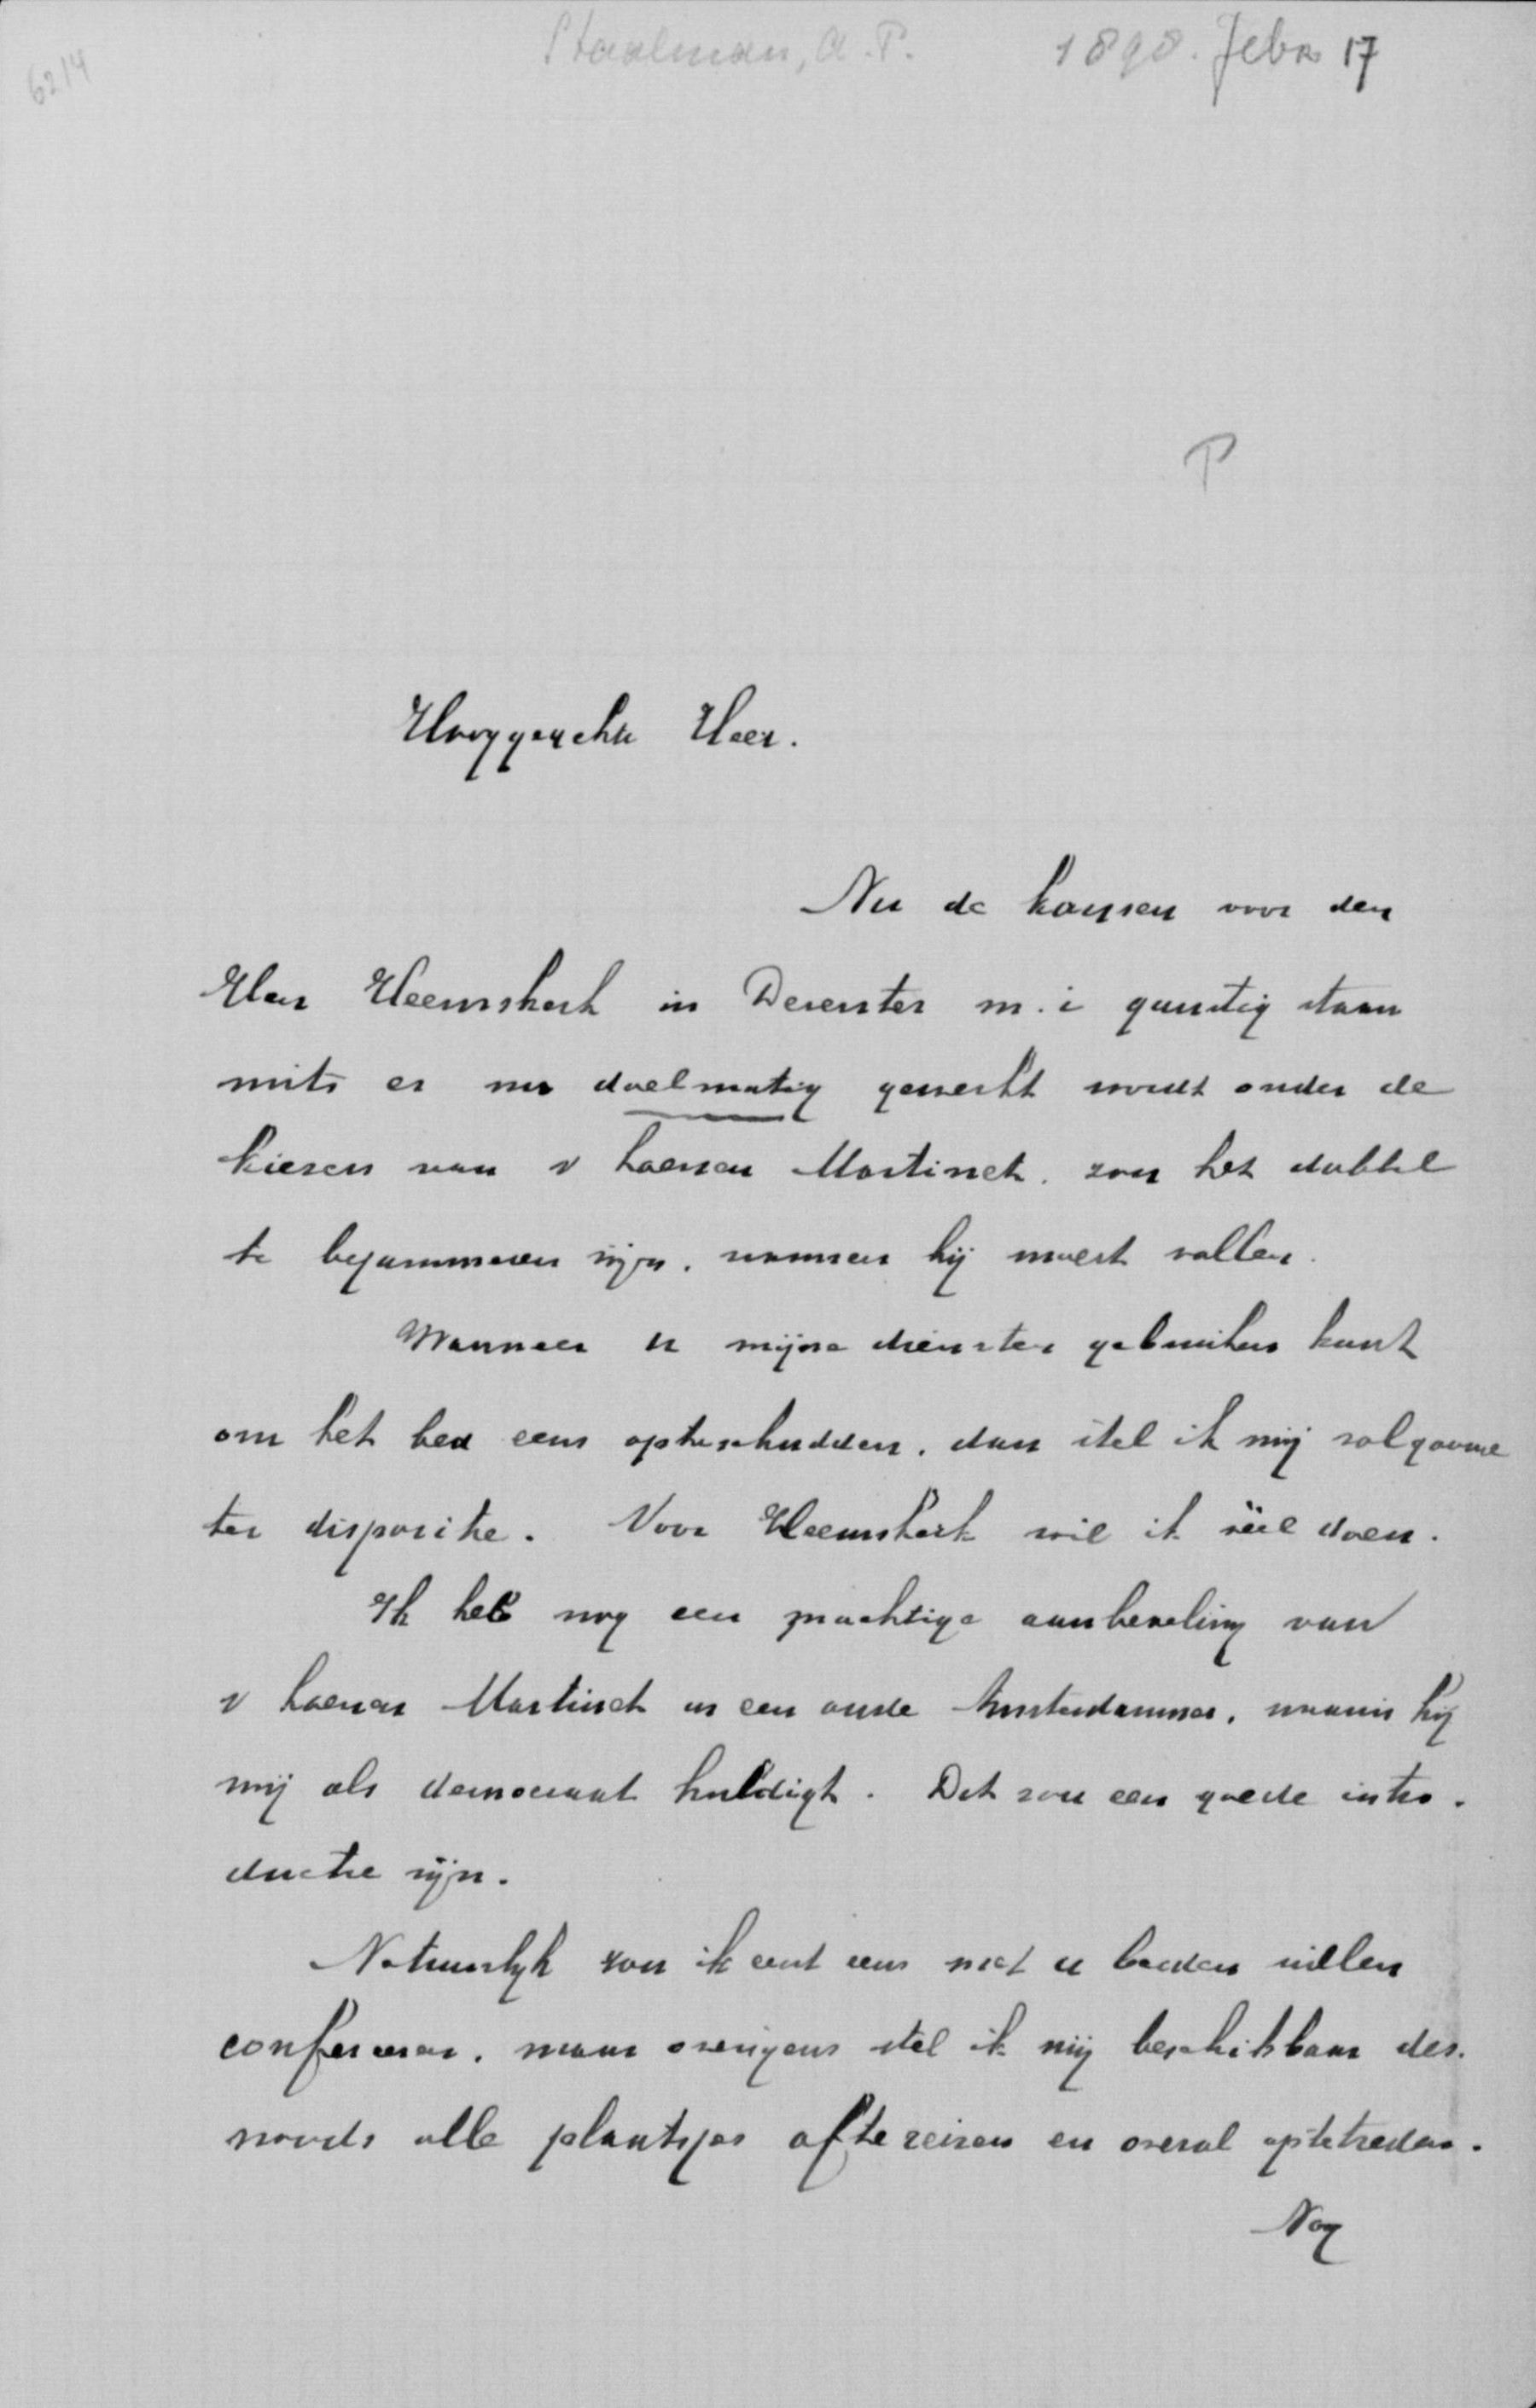 6214
Staalman, A. P. 1898. Febr 17
P
Hooggeachte Heer.
Nu de kansen voor den
Heer Heemskerk in Deventer m. i gunstig staan
mits er nu doelmatig gewerkt wordt onder de
kiezers van v Loenen Martinet. zou het dubbel
te bejammeren zijn. wanneer hij moest vallen.
Wanneer u mijne diensten gebruiken kunt
om het bed eens opteschudden. dan stel ik mij volgaarne
ter dispositie. Voor Heemskerk wil ik véél doen.
Ik heb nog een prachtige aanbeveling van
v Loenen Martinet in een oude Amsterdammer. waarin hij
mij als democraat huldigt. Dat zou een goede intro.
ductie zijn.
Natuurlijk zou ik eerst eens met u beiden willen
confereeren. maar overigens stel ik mij beschikbaar des.
noods alle plaatsjes afte reizen en overal optetreden.
Nog